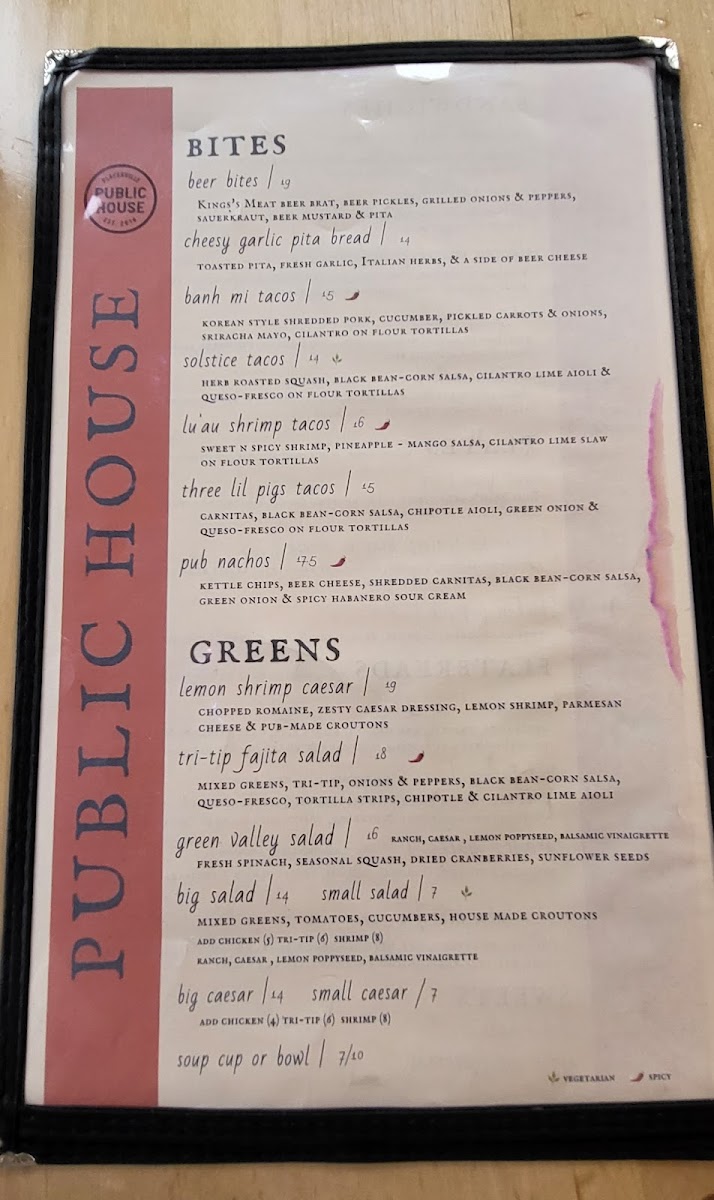 BITES
beer bites | 19
KINGS'S MEAT BEER BRAT, BEER PICKLES, GRILLED ONIONS & PEPPERS,
SAUERKRAUT, BEER MUSTARD & PITA
cheesy garlic pita bread | 14
TOASTED PITA, FRESH GARLIC, ITALIAN HERBS, & A SIDE OF BEER CHEESE
banh mi tacos | 15
KOREAN STYLE SHREDDED PORK, CUCUMBER, PICKLED CARROTS & ONIONS,
SRIRACHA MAYO, CILANTRO ON FLOUR TORTILLAS
solstice tacos | 14
HERB ROASTED SQUASH, BLACK BEAN-CORN SALSA, CILANTRO LIME AIOLI &
QUESO-FRESCO ON FLOUR TORTILLAS
lu'au shrimp tacos | 16
SWEET N SPICY SHRIMP, PINEAPPLE - MANGO SALSA, CILANTRO LIME SLAW
ON FLOUR TORTILLAS
three lil pigs tacos | 15
CARNITAS, BLACK BEAN-CORN SALSA, CHIPOTLE AIOLI, GREEN ONION &
QUESO-FRESCO ON FLOUR TORTILLAS
pub nachos | 17.5
KETTLE CHIPS, BEER CHEESE, SHREDDED CARNITAS, BLACK BEAN-CORN SALSA,
GREEN ONION & SPICY HABANERO SOUR CREAM
GREENS
lemon shrimp caesar | 19
CHOPPED ROMAINE, ZESTY CAESAR DRESSING, LEMON SHRIMP, PARMESAN
CHEESE & PUB-MADE CROUTONS
tri-tip fajita salad | 18
MIXED GREENS, TRI-TIP, ONIONS & PEPPERS, BLACK BEAN-CORN SALSA,
QUESO-FRESCO, TORTILLA STRIPS, CHIPOTLE & CILANTRO LIME AIOLI
green valley salad | 16 RANCH, CAESAR , LEMON POPPYSEED, BALSAMIC VINAIGRETTE
FRESH SPINACH, SEASONAL SQUASH, DRIED CRANBERRIES, SUNFLOWER SEEDS
big salad | 14 small salad | 7
MIXED GREENS, TOMATOES, CUCUMBERS, HOUSE MADE CROUTONS
ADD CHICKEN (5) TRI-TIP (6) SHRIMP (8)
RANCH, CAESAR , LEMON POPPYSEED, BALSAMIC VINAIGRETTE
big caesar | 14 small caesar / 7
ADD CHICKEN (4) TRI-TIP (6) SHRIMP (8)
soup cup or bowl | 7/10
VEGETARIAN SPICY
PLACERVILLE
PUBLIC
HOUSE
PUBLIC HOUSE